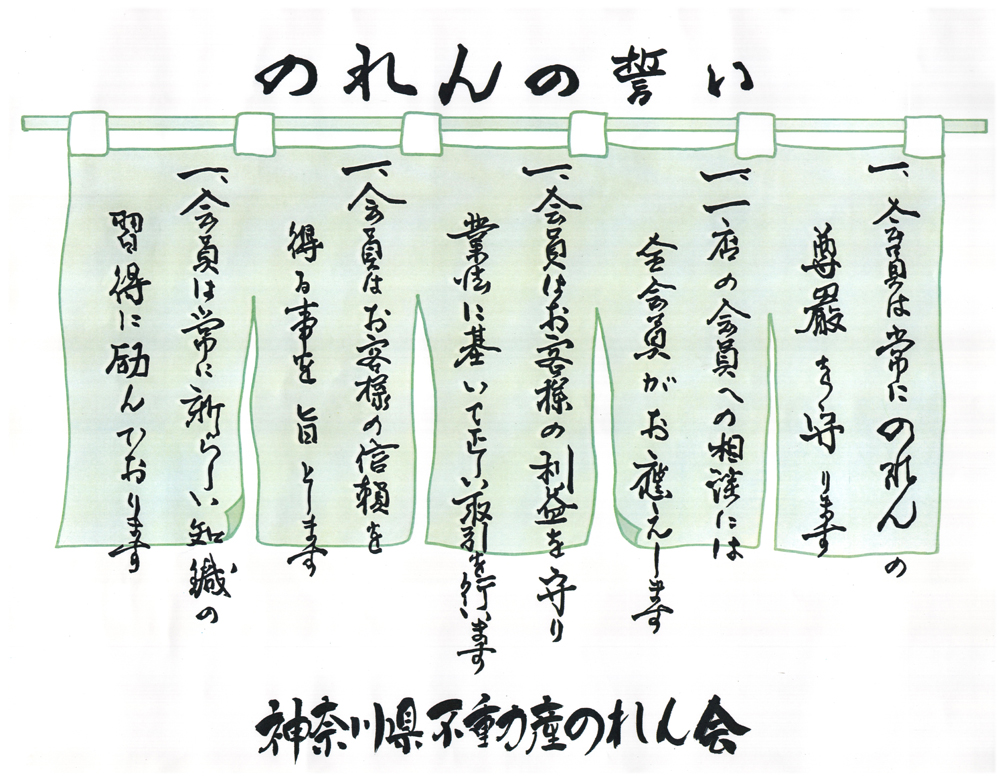 のれんの誓い
一、会員は常にのれんの
尊厳を守ります
一、一店の会員への相談には
全会員がお應えします
一、会員はお客様の利益を守り
業法に基いて正しい取引を行います
一、会員はお客様の信頼を
得る事を旨とします
一、会員は常に新らしい知識の
習得に励んでおります
神奈川県不動産のれん会